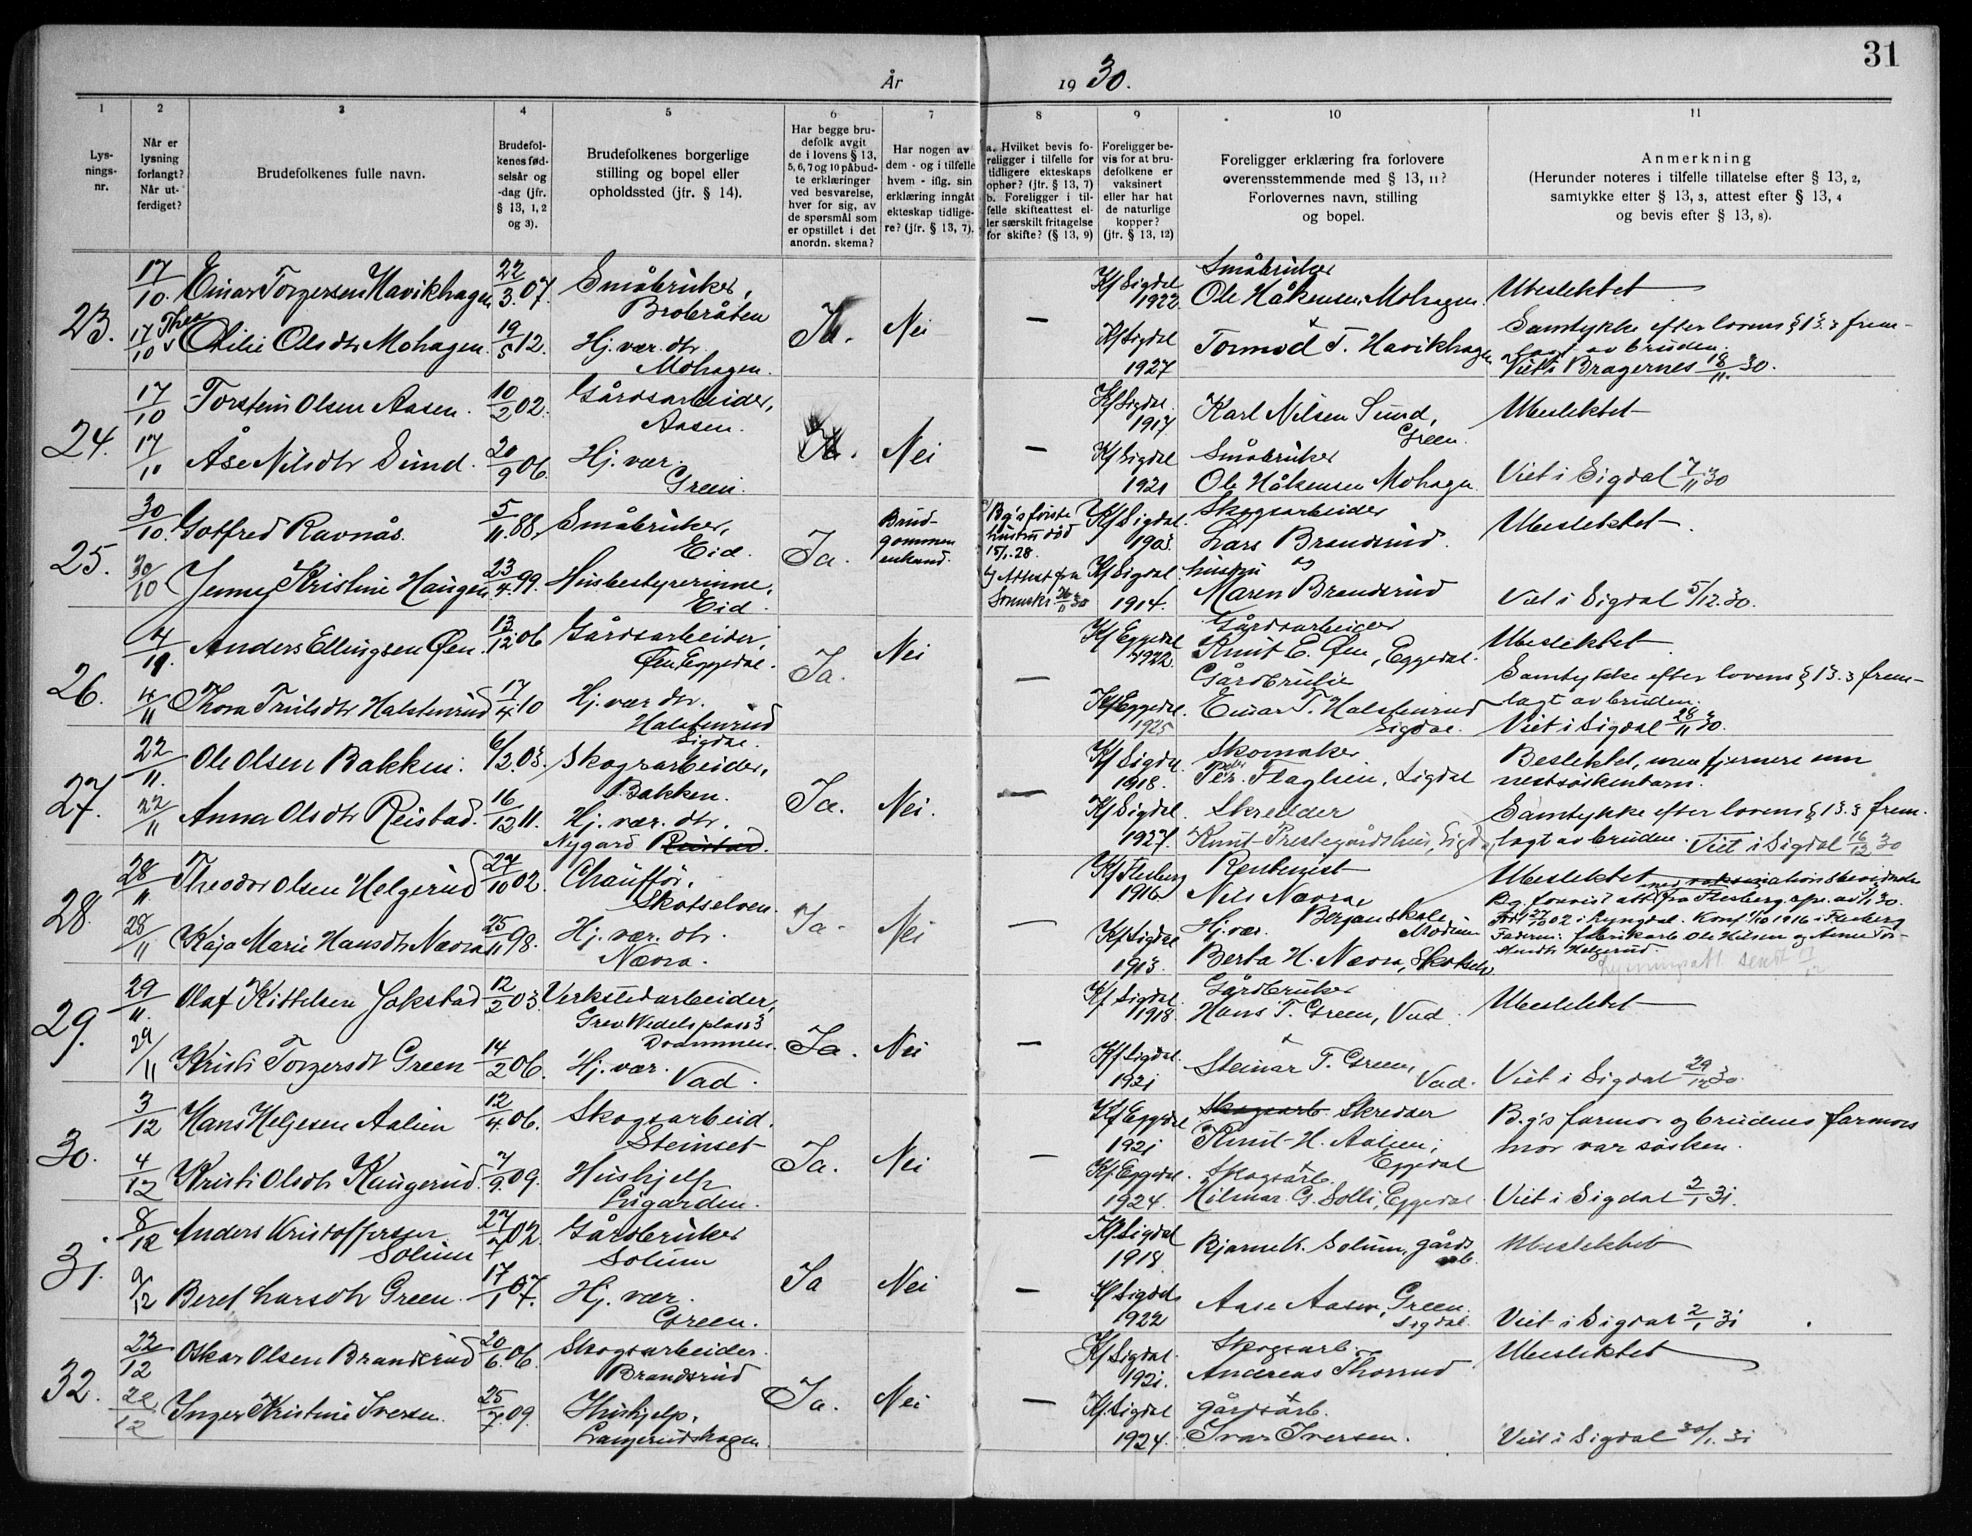 31
År 1930.
1 2 3 4 5 6 7 8 9 10 11
Lys-
nings-
nr.
Når er
lysning
forlangt?
Når ut-
ferdiget?
Brudefolkenes fulle navn.
Brudefol-
kenes fød-
selsår og
-dag (jfr.
§ 13, 1, 2
og 3).
Brudefolkenes borgerlige
stilling og bopel eller
opholdssted (jfr. § 14).
Har begge bru-
defolk avgit
de i lovens § 13,
5, 6, 7 og 10 påbud-
te erklæringer
ved besvarelse,
hver for sig, av
de spørsmål som
er opstillet i det
anordn. skema?
Har nogen av
dem - og i tilfelle
hvem - iflg. sin
erklæring inngåt
ekteskap tidlige-
re? (jfr. § 13, 7).
a. Hvilket bevis fo-
religger i tilfelle for
tidligere ekteskaps
ophør? (jfr. § 13, 7)
b. Foreligger i til-
felle skifteattest el-
ler særskilt fritagelse
for skifte? (§ 13, 9)
Foreligger be-
vis for at bru-
defolkene er
vaksinert
eller har hat
de naturlige
kopper?
(jfr. § 13, 12)
Foreligger erklæring fra forlovere
overensstemmende med § 13, 11?
Forlovernes navn, stilling
og bopel.
Anmerkning
(Herunder noteres i tilfelle tillatelse efter § 13, 2,
samtykke efter § 13, 3, attest efter § 13, 4
og bevis efter § 13, 8).
23.
17/10. Einar Torgersen Havikhagen 22/3.07. Småbruker,
Brobråten
Ja. Nei —
Kf Sigdal
1922
Småbruker
Ole Håkensen Mohagen.
Ubeslektet
17/10 Thea
Otilie Olsdtr Mohagen. 19/5 12. Hj. vær. dtr.
Mohagen.
Kf Sigdal
1927
Tormod T. Havikhagen
Samtykke efter lovens § 13.3 frem-
lagt av bruden.
Viet i Bragernes 18/11.30.
24.
17/10 Torstein Olsen Aasen. 10/2 02. Gårdsarbeider,
Aasen.
Ja. Nei —
Kf Sigdal
1917
Karl Nilsen Sund,
Green.
Ubeslektet
17/10 Åse Nilsdtr Sund. 20/9 06. Hj. vær.
Green.
Kf Sigdal
1921
Småbruker
Ole Håkensen Mohagen
Viet i Sigdal 7/11 30
25.
30/10. Gotfred Ravnås. 5/11 88. Småbruker,
Eid.
Ja. Brud-
gommen
enkem.
a/ Bg's første
hustru død
15/1.28.
b/ Attest fra
Kf Sigdal.
1903.
Skogsarbeider
Lars Brandsrud.
Ubeslektet
30/10 Jenny Kristine Haugen 23/4.99. Husbestyrerinne,
Eid.
Kf Sigdal
1914.
hustru og
Maren Brandsrud
Viet i Sigdal 5/12.30.
26.
4/11. Anders Ellingsen Øen. 13/12 06 Gårdsarbeider,
Øen, Eggedal.
Ja. Nei —
Kf Eggedal
1922.
Gårdsarbeider
Knut E. Øen, Eggedal.
Ubeslektet.
4/11 Thora Trulsdtr Halstenrud 17/4 10 Hj. vær dtr.
Halstenrud
Sigdal.
Kf Eggedal.
1925
Gårdbruker
Einar T. Halstenrud
Sigdal.
Samtykke efter lovens § 13.3 frem-
lagt av bruden.
Viet i Sigdal 28/11 30.
27.
22/11. Ole Olsen Bakken. 6/12.03. Skogsarbeider,
Bakken.
Ja. Nei. —
Kf Sigdal
1918.
Skomaker
Per Flaglien, Sigdal
Beslektet, men fjernere enn
nestsøskenbarn.
22/11 Anna Olsdtr Reistad. 16/12 11. Hj. vær. dtr.
Nygard Reistad.
Kf Sigdal.
1927.
Skredder
Knut Prestegårdshus, Sigdal
Samtykke efter lovens § 13.3 frem-
lagt av bruden. Viet i Sigdal 16/12 30
28.
28/11 Theodor Olsen Helgerud 27/10 02. Chauffør,
Skotselven.
Ja. Nei —
Kf Flesberg
1916
Rentenist
Nils Nævra,
Bergan skole
Modum
Ubeslektet
28/11 Kaja Marie Hansdtr Nævra 25/11 98. Hj. vær. dtr.
Nævra.
Kf Sigdal
1913.
Hj. vær.
Berta H. Nævra, Skotselv
29.
29/11. Olaf Kittelsen Jokstad 12/2 03. Verkstedarbeider,
Grev Wedels plass 3
Drammen.
Ja. Nei —
Kf Sigdal
1918.
Gårdbruker
Hans T. Green, Vad.
Ubeslektet
29/11 Kristi Torgersdt Green 14/2 06. Hj. vær.
Vad.
Kf Sigdal.
1921
Steinar T. Green,
Vad.
Viet i Sigdal 29/12 30.
30.
3/12 Hans Helgesen Aalien 12/4.06. Skogsarbeid.
Steinset
Ja. Nei —
Kf Eggedal
1921
Skogsarb Skredder
Knut H. Aalien,
Eggedal
B.g's farmor og brudens farmors
mor var søsken.
4/12 Kristi Olsdtr Kaugerud. 7/9.09. Hushjelp
Lugarden.
Kf Eggedal.
1924.
Skogsarb.
Hilmar G. Solli, Eggedal
Viet i Sigdal 2/1 31.
31.
8/12 Anders Kristoffersen
Solum
27/7 02. Gårdbruker
Solum
Ja Nei —
Kf Sigdal
1918.
Bjarne K. Solum, gårds
arb.
Ubeslektet
9/12 Beret Larsdtr Green. 17/1 07. Hj. vær.
Green.
Kf Sigdal
1922
Aase Aasen, Green.
Sigdal.
Viet i Sigdal 2/1 31
32.
22/12 Oskar Olsen Brandsrud 20/6.06. Skogsarbeider.
Brandsrud
Ja. Nei —
Kf Sigdal.
1921.
Skogsarb.
Andreas Thorrud
Ubeslektet
22/12 Inger Kristine Iversen. 25/7.09. Hushjelp.
Langerudshagen.
Kf. Sigdal
1924.
gårdsarb.
Ivar Iversen.
Viet i Sigdal 30/1. 31